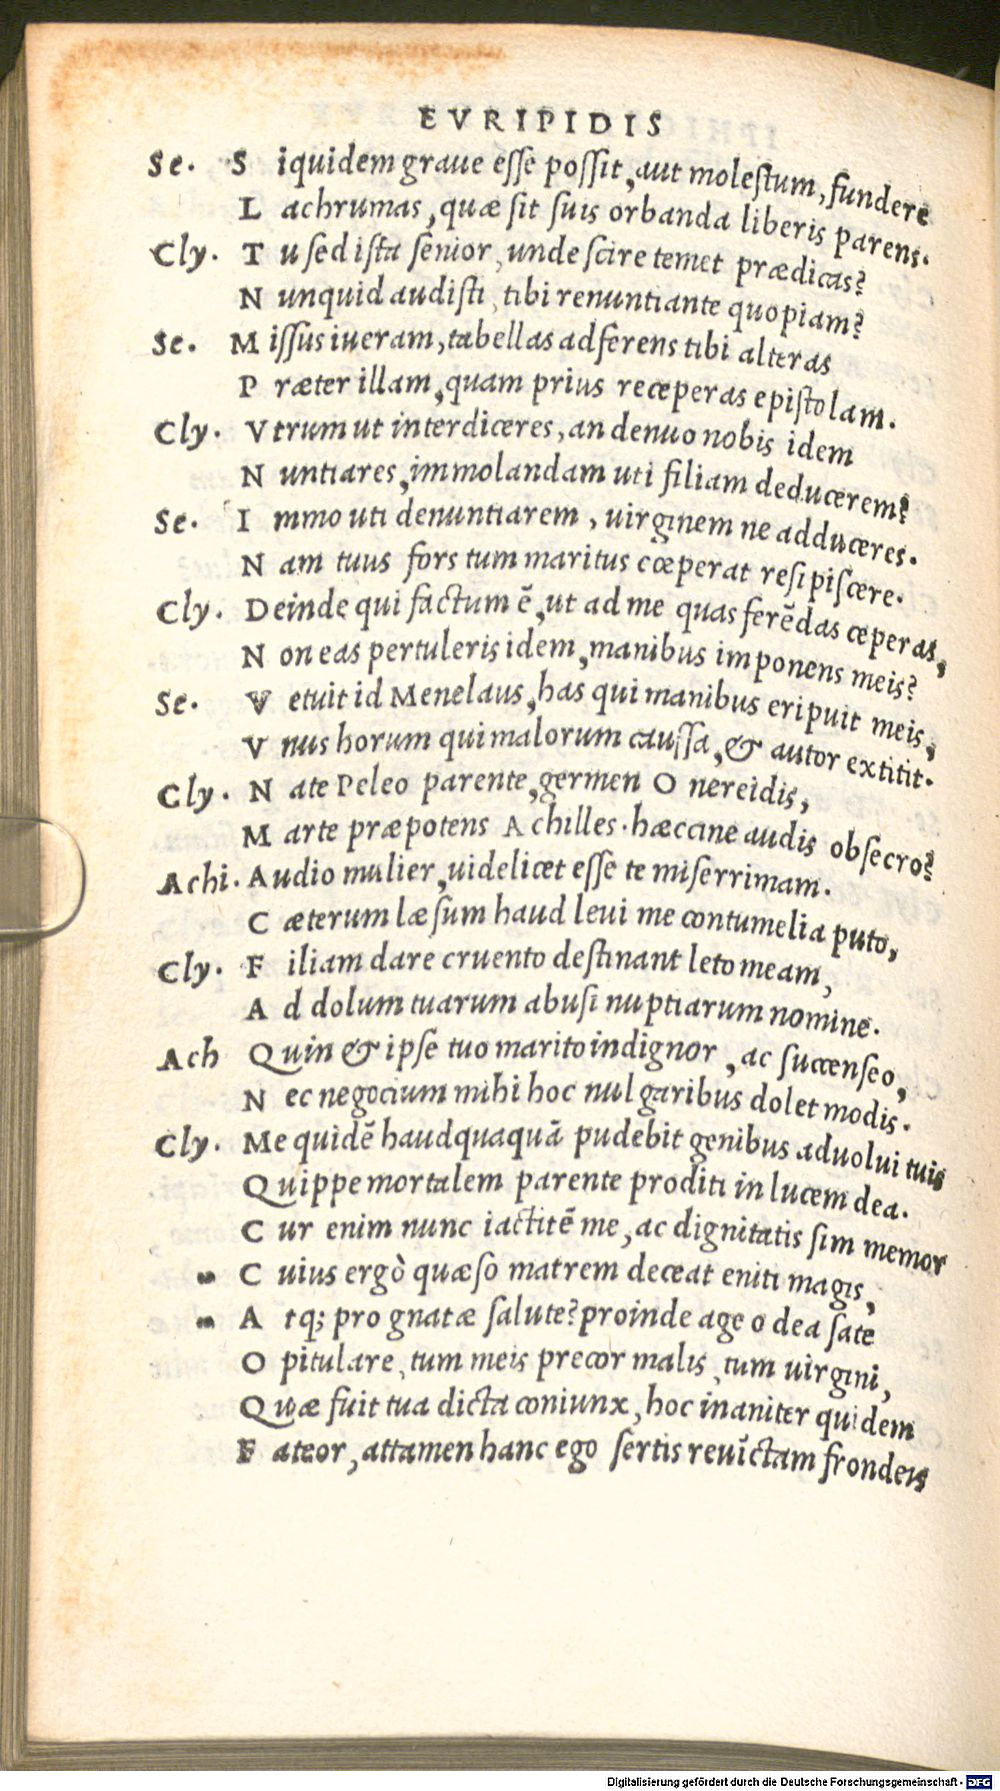 EVRIPIDIS
Se. S iquidem graue esse possit, aut molestum, fundere
L achrumas, quæ sit suis orbanda liberis parens.
Cly. T u sed ista senior, unde scire temet prædicas?
N unquid audisti, tibi renuntiante quopiam?
Se. M issus iueram, tabellas adferens tibi alteras
P ræter illam, quam prius receperas epistolam.
Cly. Vtrum ut interdiceres, an denuo nobis idem
N untiares, immolandam uti filiam deducerem?
Se. I mmo uti denuntiarem, uirginem ne adduceres.
N am tuus fors tum maritus cœperat resipiscere.
Cly. Deinde qui factum ē, ut ad me quas ferēdas ceperas,
N on eas pertuleris idem, manibus imponens meis?
Se. V etuit id Menelaus, has qui manibus eripuit meis,
V nus horum qui malorum caussa, & autor extitit.
Cly. N ate Peleo parente, germen O nereidis,
M arte præpotens Achilles. hæccine audis obsecro?
Achi. Audio mulier, uidelicet esse te miserrimam.
C æterum læsum haud leui me contumelia puto,
Cly. F iliam dare cruento destinant leto meam,
A d dolum tuarum abusi nuptiarum nomine.
Ach Quin & ipse tuo marito indignor, ac succenseo,
N ec negocium mihi hoc uulgaribus dolet modis.
Cly. Me quidē haudquaquā pudebit genibus aduolui tuis
Quippe mortalem parente proditi in lucem dea.
C ur enim nunc iactitē me, ac dignitatis sim memor
" C uius ergò quæso matrem deceat eniti magis,
" A tq; pro gnatæ salute? proinde age o dea sate
O pitulare, tum meis precor malis, tum uirgini,
Quæ fuit tua dicta coniunx, hoc inaniter quidem
F ateor, attamen hanc ego sertis reuīctam frondeis
Digitalisierung gefördert durch die Deutsche Forschungsgemeinschaft - DFG